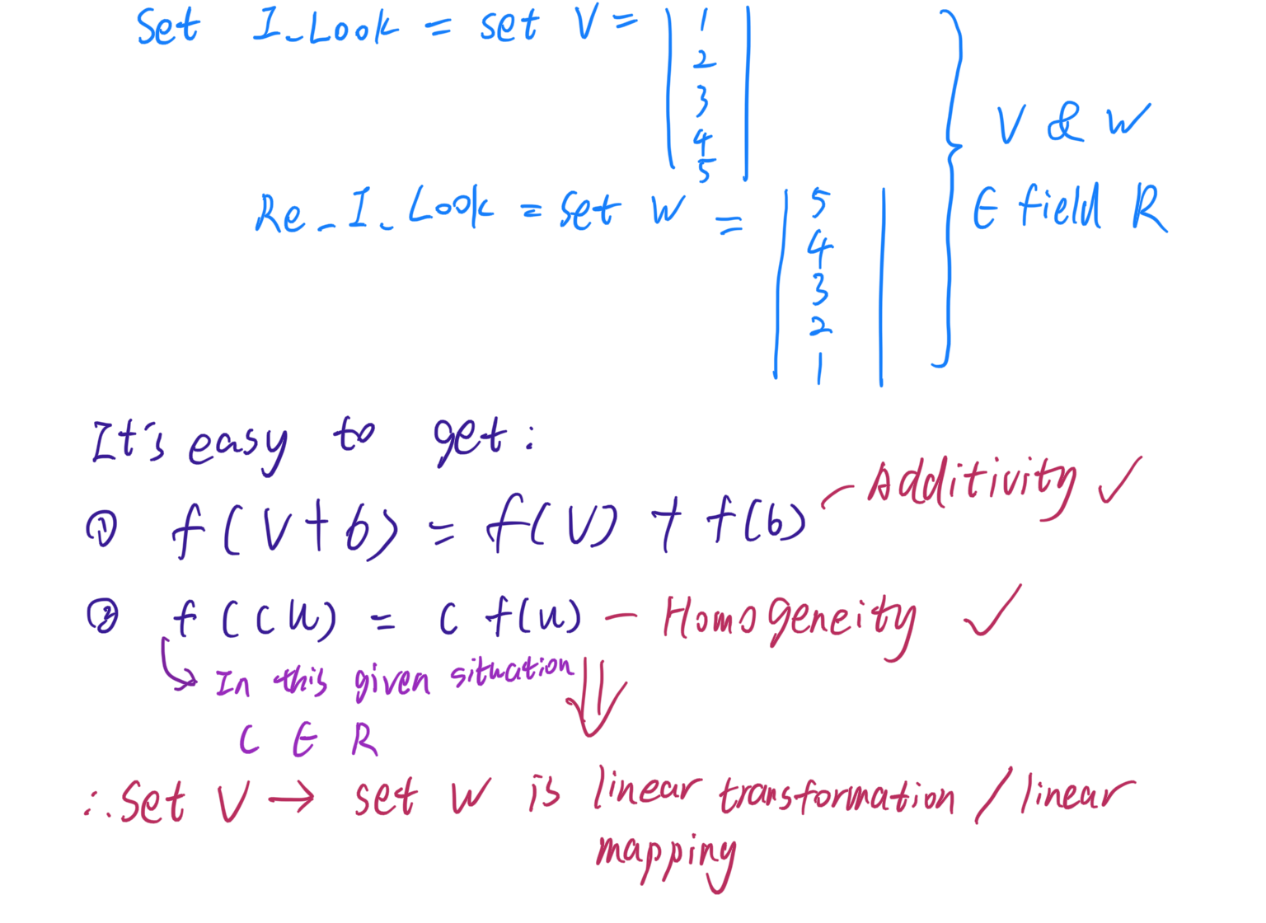 Set I_Look = set V = | 1 |
2
3
4
5
V & W
Re_I_Look = set W = | 5 |
4
3
2
1
∈ field R
It's easy to get:
① f(V+b) = f(V) + f(b) — Additivity ✓
② f(cu) = c f(u) — Homogeneity ✓
↳ In this given situation ⇓
C ∈ R
∴ Set V → set W is linear transformation / linear
mapping